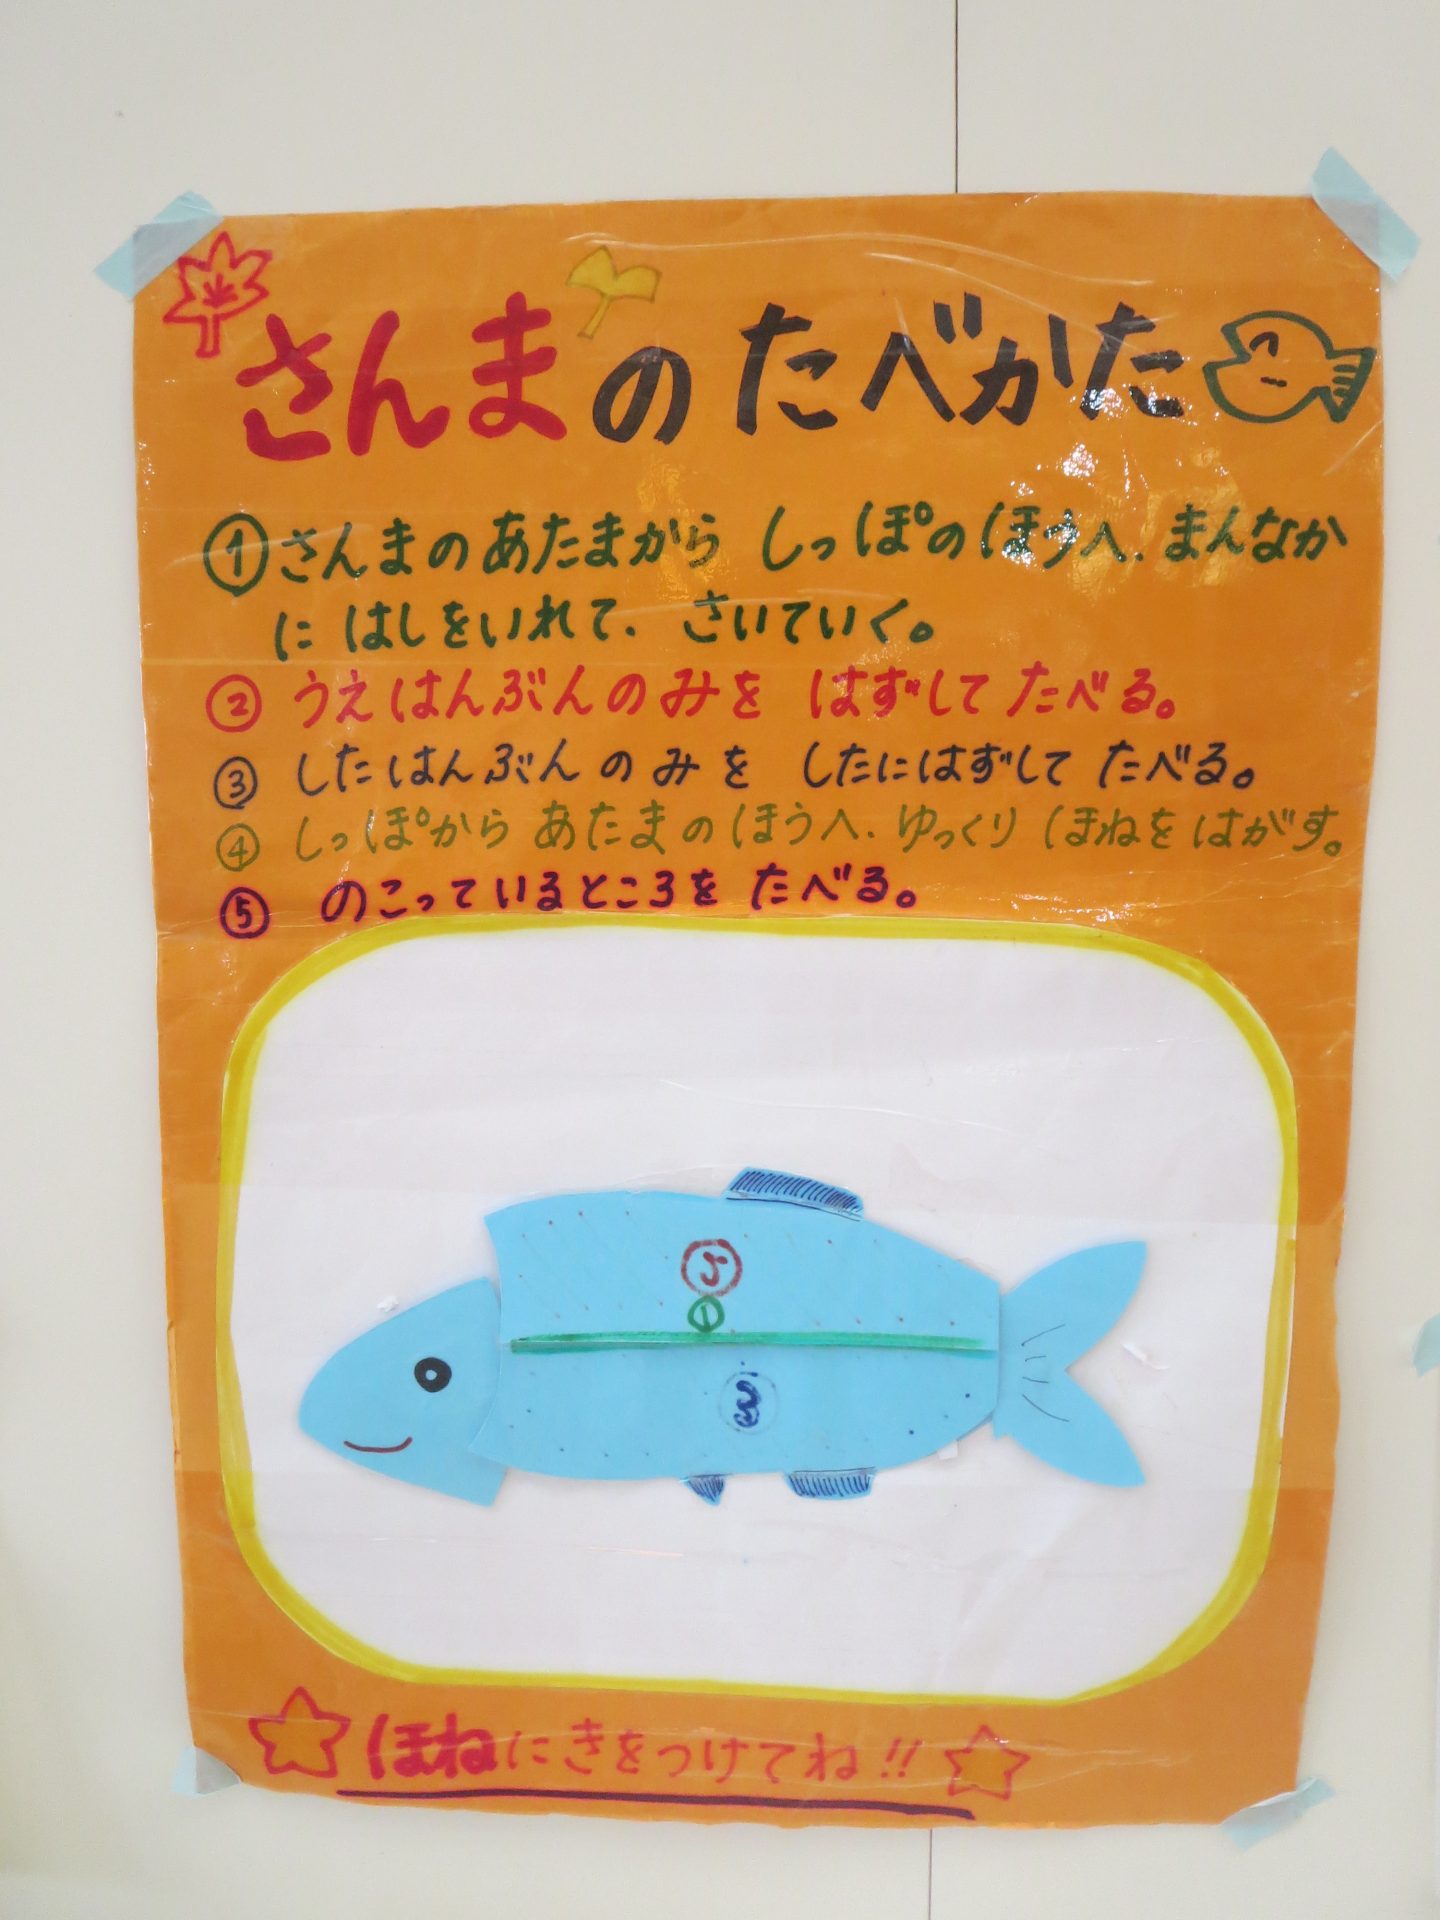 さんまのたべかた
①さんまのあたまから しっぽのほうへ、まんなか
に はしをいれて、さいていく。
② うえはんぶんのみを はずして たべる。
③ したはんぶんのみを したにはずして たべる。
④ しっぽから あたまのほうへ、ゆっくり ほねを はがす。
⑤ のこっているところを たべる。
①
③
ほねにきをつけてね!!